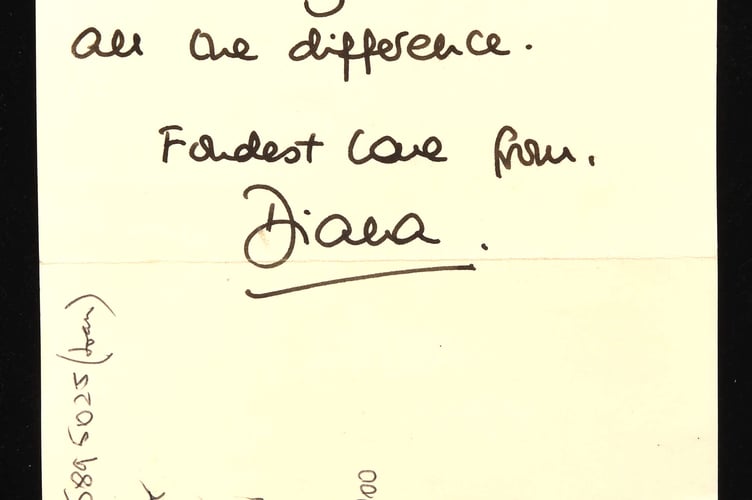 all the difference.
Fondest love from.
Diana.
5895025 (Joan)
00